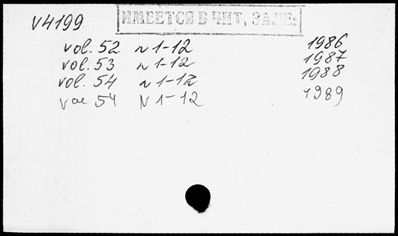 V4199
ИМЕЕТСЯ В ЧИТ. ЗАЛЕ.
vol. 52 N 1-12 1986
vol. 53 N 1-12 1987
vol. 54 N 1-12 1988
vol 54 N 1-12 1989